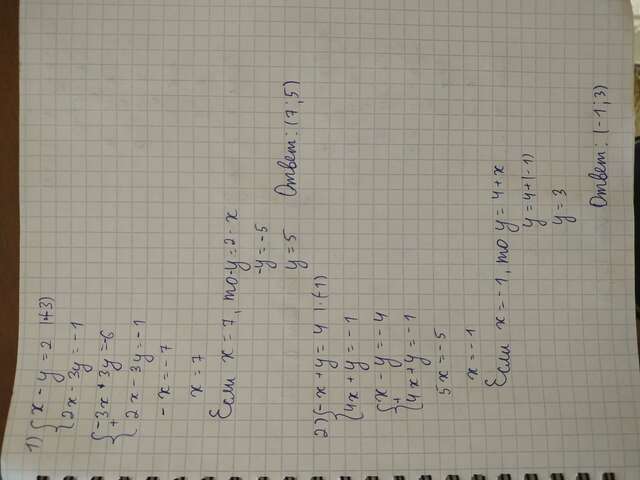 1) {x - y = 2 |·(-3)
{2x - 3y = -1
{-3x + 3y = -6
+
{2x - 3y = -1
-x = -7
x = 7
Если x = 7, то -y = 2 - x
-y = -5
y = 5
Ответ: (7; 5)
2) {-x + y = 4 |·(-1)
{4x + y = -1
{x - y = -4
+
{4x + y = -1
5x = -5
x = -1
Если x = -1, то y = 4 + x
y = 4 + (-1)
y = 3
Ответ: (-1; 3)